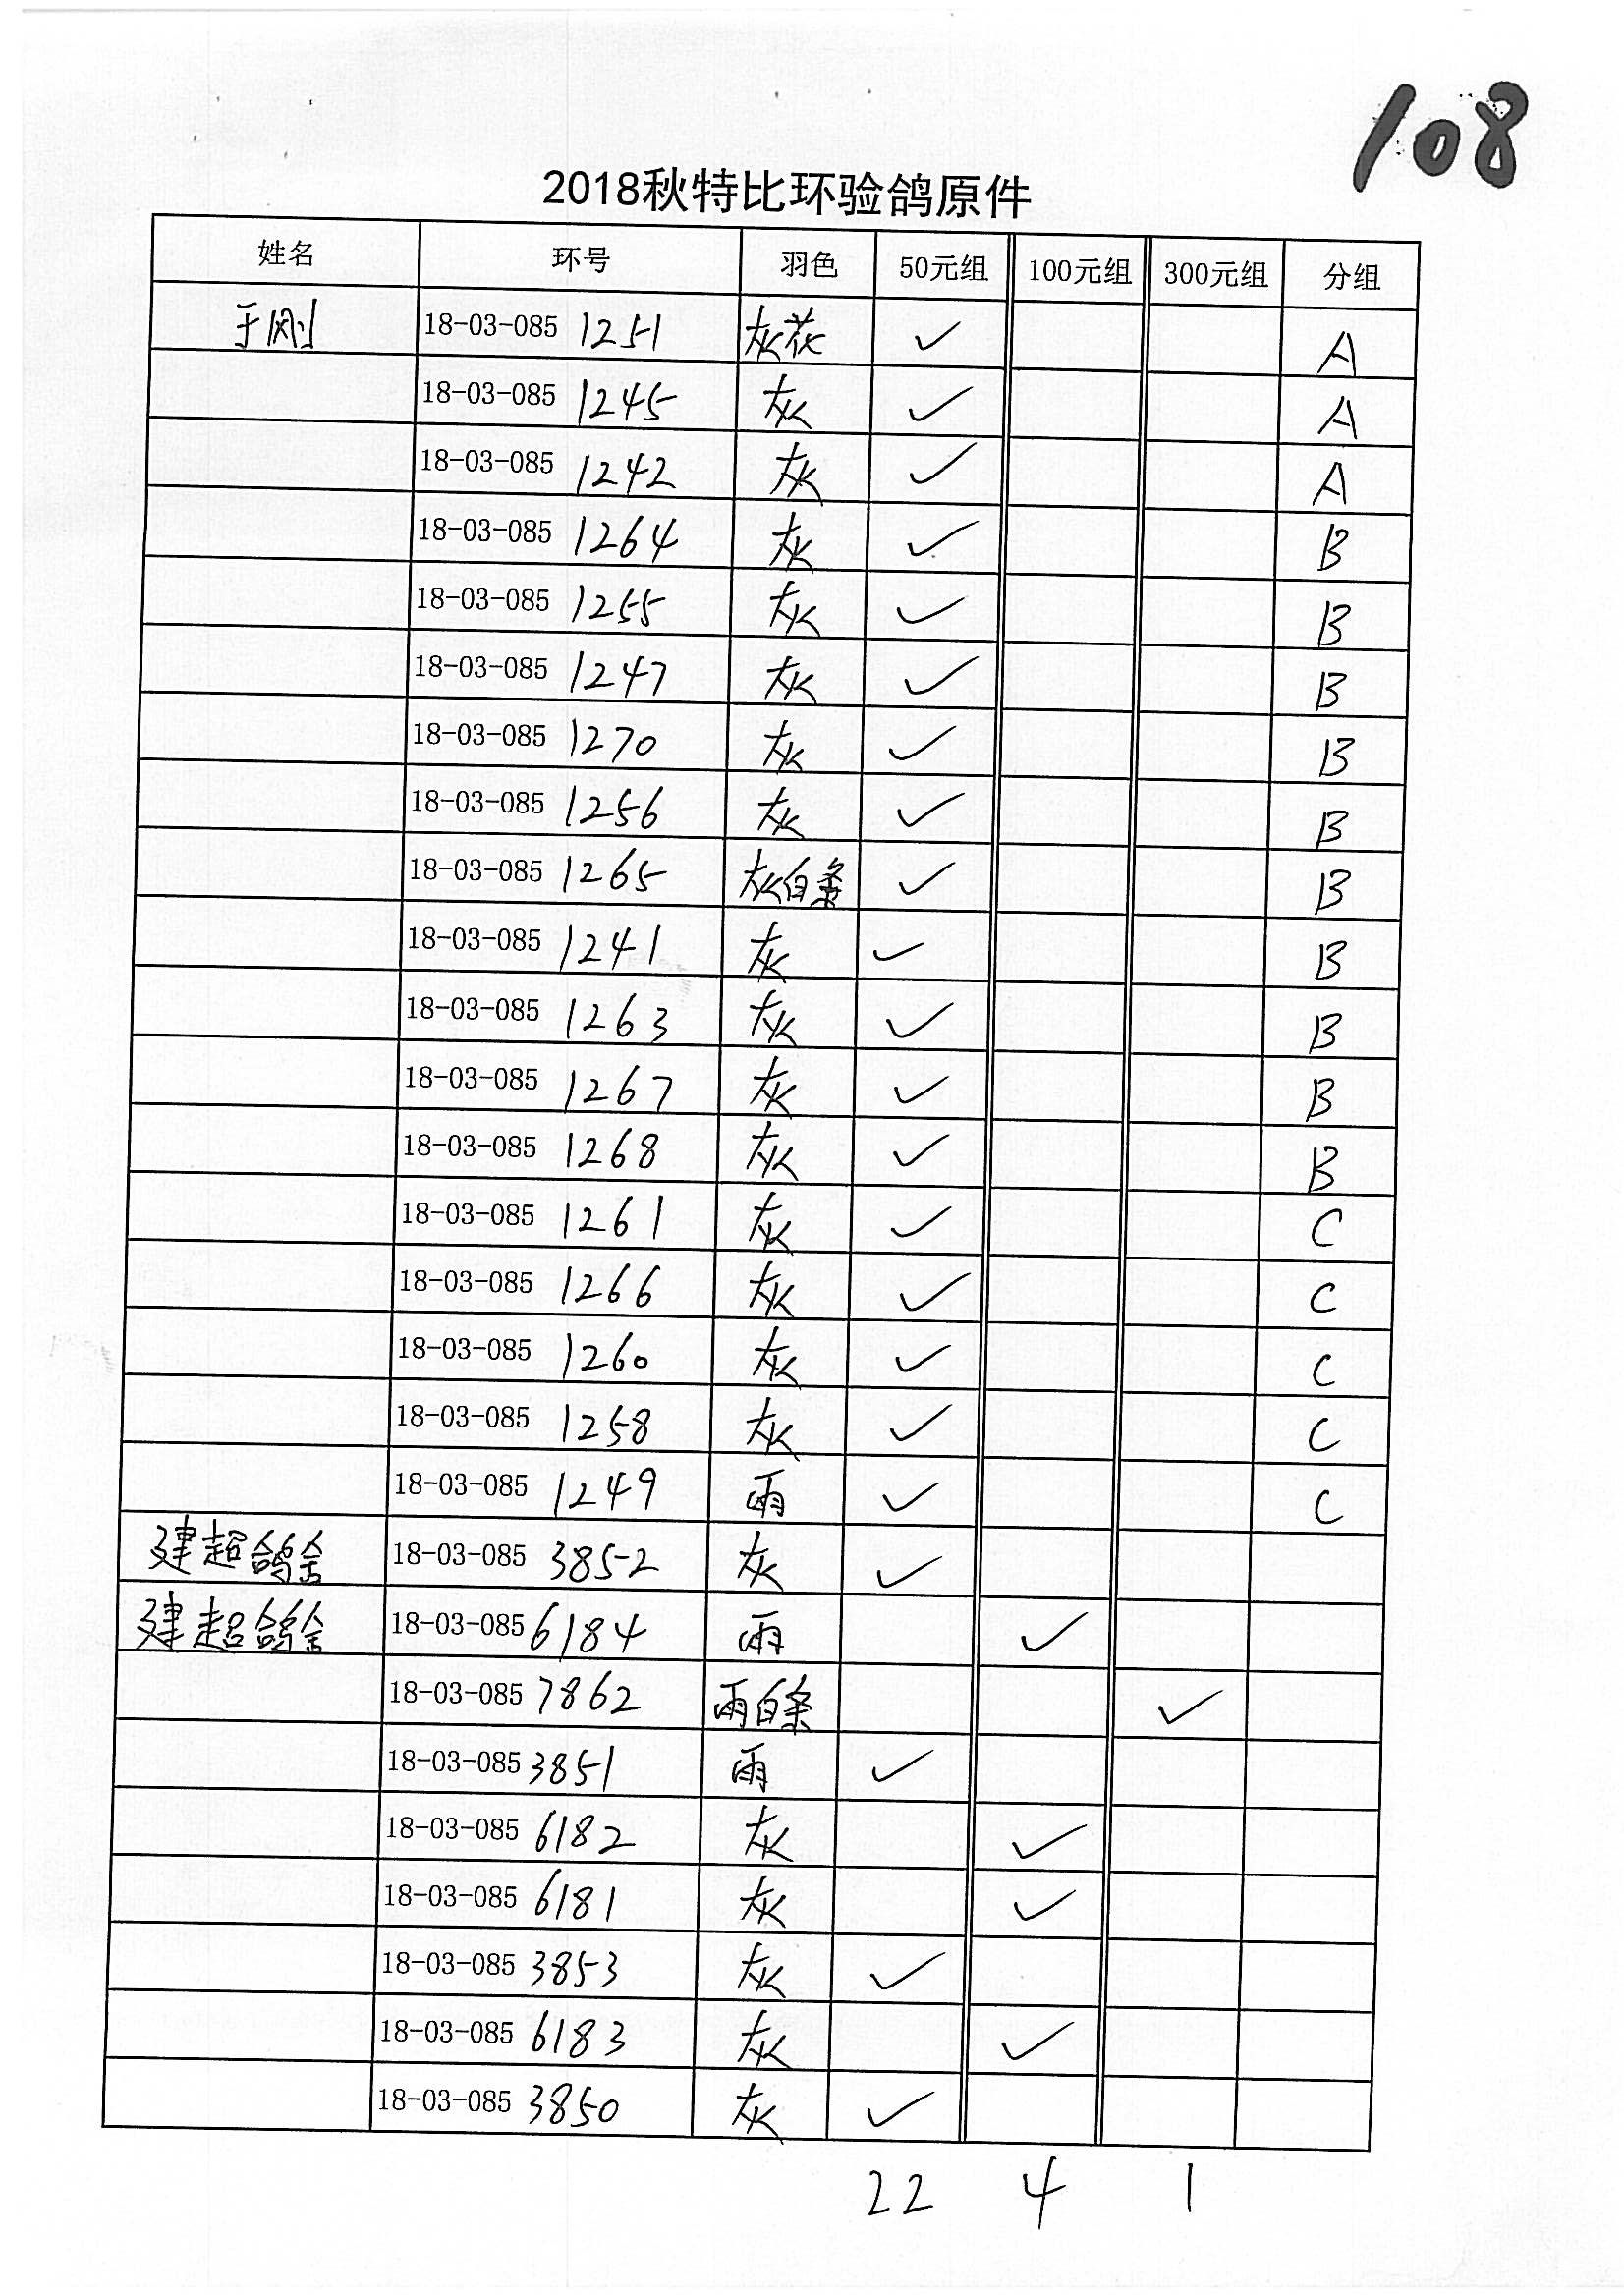 108
2018秋特比环验鸽原件
姓名 环号 羽色 50元组 100元组 300元组 分组
于刚 18-03-085 1251 灰花 ✓ A
18-03-085 1245 灰 ✓ A
18-03-085 1242 灰 ✓ A
18-03-085 1264 灰 ✓ B
18-03-085 1255 灰 ✓ B
18-03-085 1247 灰 ✓ B
18-03-085 1270 灰 ✓ B
18-03-085 1256 灰 ✓ B
18-03-085 1265 灰白条 ✓ B
18-03-085 1241 灰 ✓ B
18-03-085 1263 灰 ✓ B
18-03-085 1267 灰 ✓ B
18-03-085 1268 灰 ✓ B
18-03-085 1261 灰 ✓ C
18-03-085 1266 灰 ✓ C
18-03-085 1260 灰 ✓ C
18-03-085 1258 灰 ✓ C
18-03-085 1249 雨 ✓ C
建超鸽舍 18-03-085 3852 灰 ✓
建超鸽舍 18-03-085 6184 雨 ✓
18-03-085 7862 雨白条 ✓
18-03-085 3851 雨 ✓
18-03-085 6182 灰 ✓
18-03-085 6181 灰 ✓
18-03-085 3853 灰 ✓
18-03-085 6183 灰 ✓
18-03-085 3850 灰 ✓
22 4 1